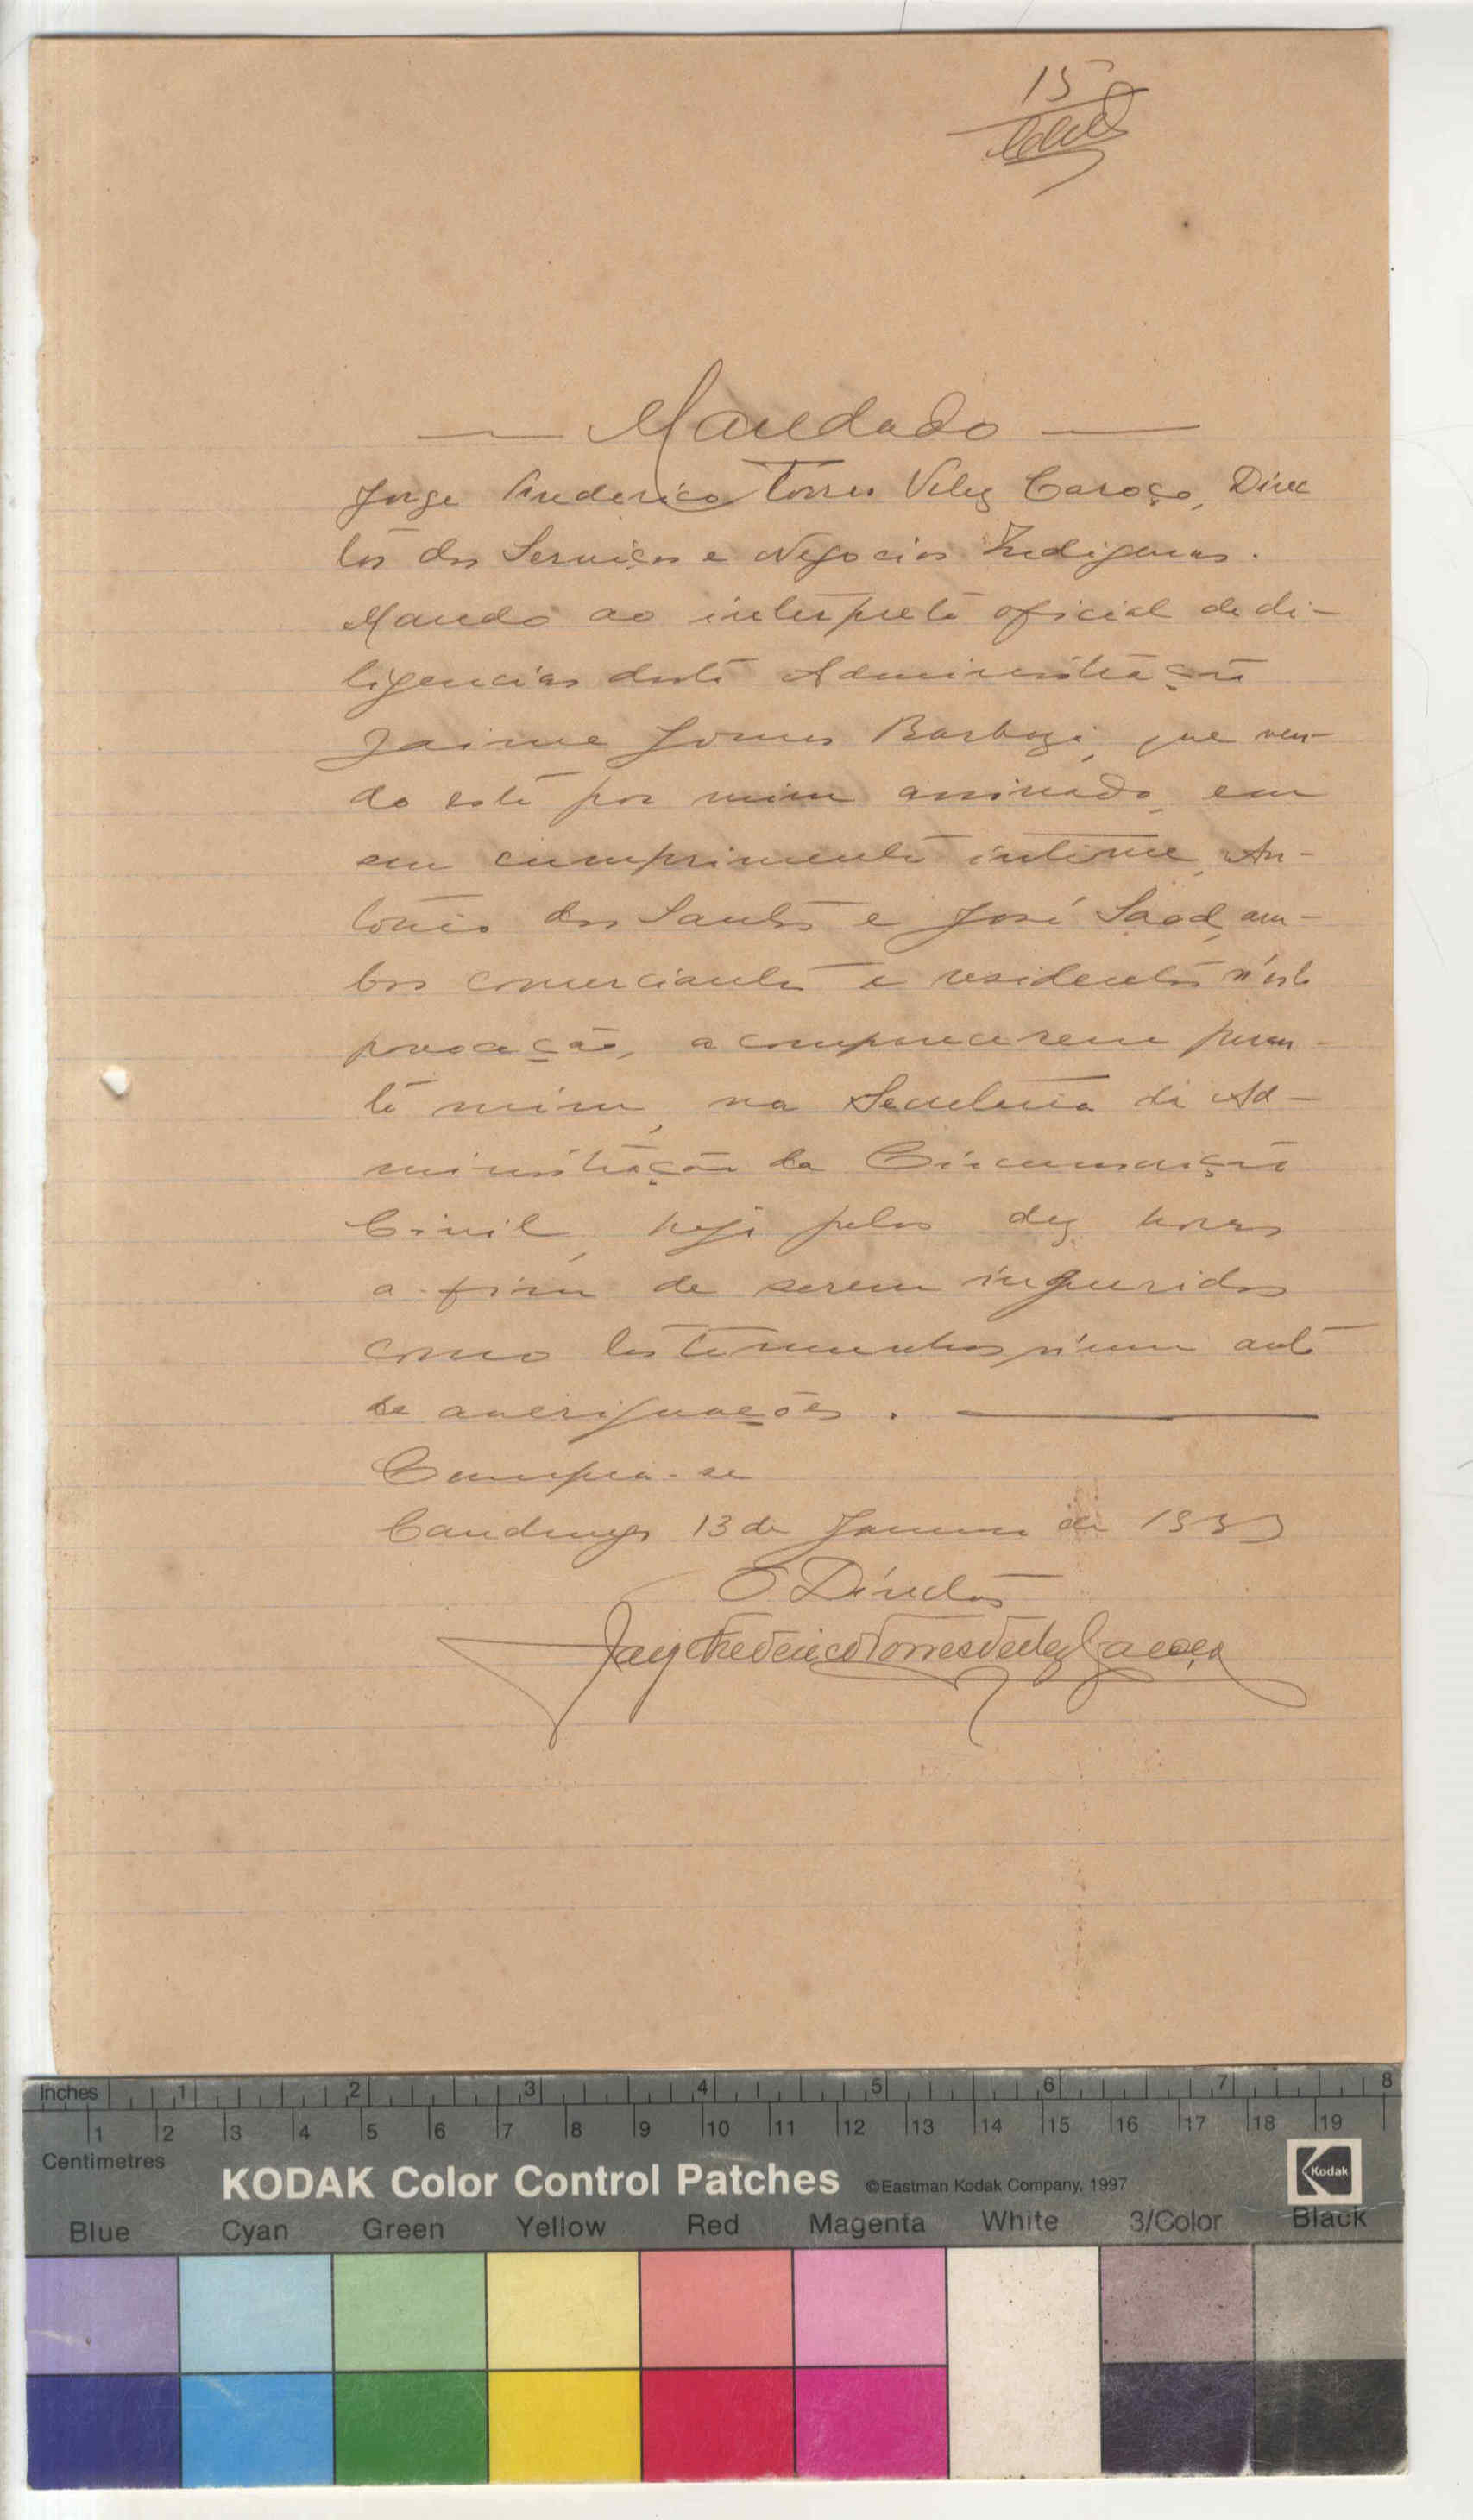 15
Mandado
Jorge Frederico Torres Velez Caroço, Direc
tor dos Serviços e Negocios Indigenas.
Mando ao interprete oficial de di-
ligencias desta Administração
Jaime Gomes Barboza, que ven-
do este por mim assinado, em
seu cumprimento intime, An-
tónio dos Santos e José Saad, am-
bos comerciantes e residentes n'esta
povoação, a comparecerem peran-
te mim, na Secretaria da Ad-
ministração da Circunscrição
Civil, hoje pelas dez horas
a fim de serem inqueridos
como testemunhas n'um auto
de averiguações.
Cumpra-se
13 de Janeiro de 1933
O Director
Jorge Frederico Torres Velez Caroço
Inches 1 2 3 4 5 6 7 8
1 2 3 4 5 6 7 8 9 10 11 12 13 14 15 16 17 18 19
Centimetres
KODAK Color Control Patches ©Eastman Kodak Company, 1997 Kodak
Blue Cyan Green Yellow Red Magenta White 3/Color Black